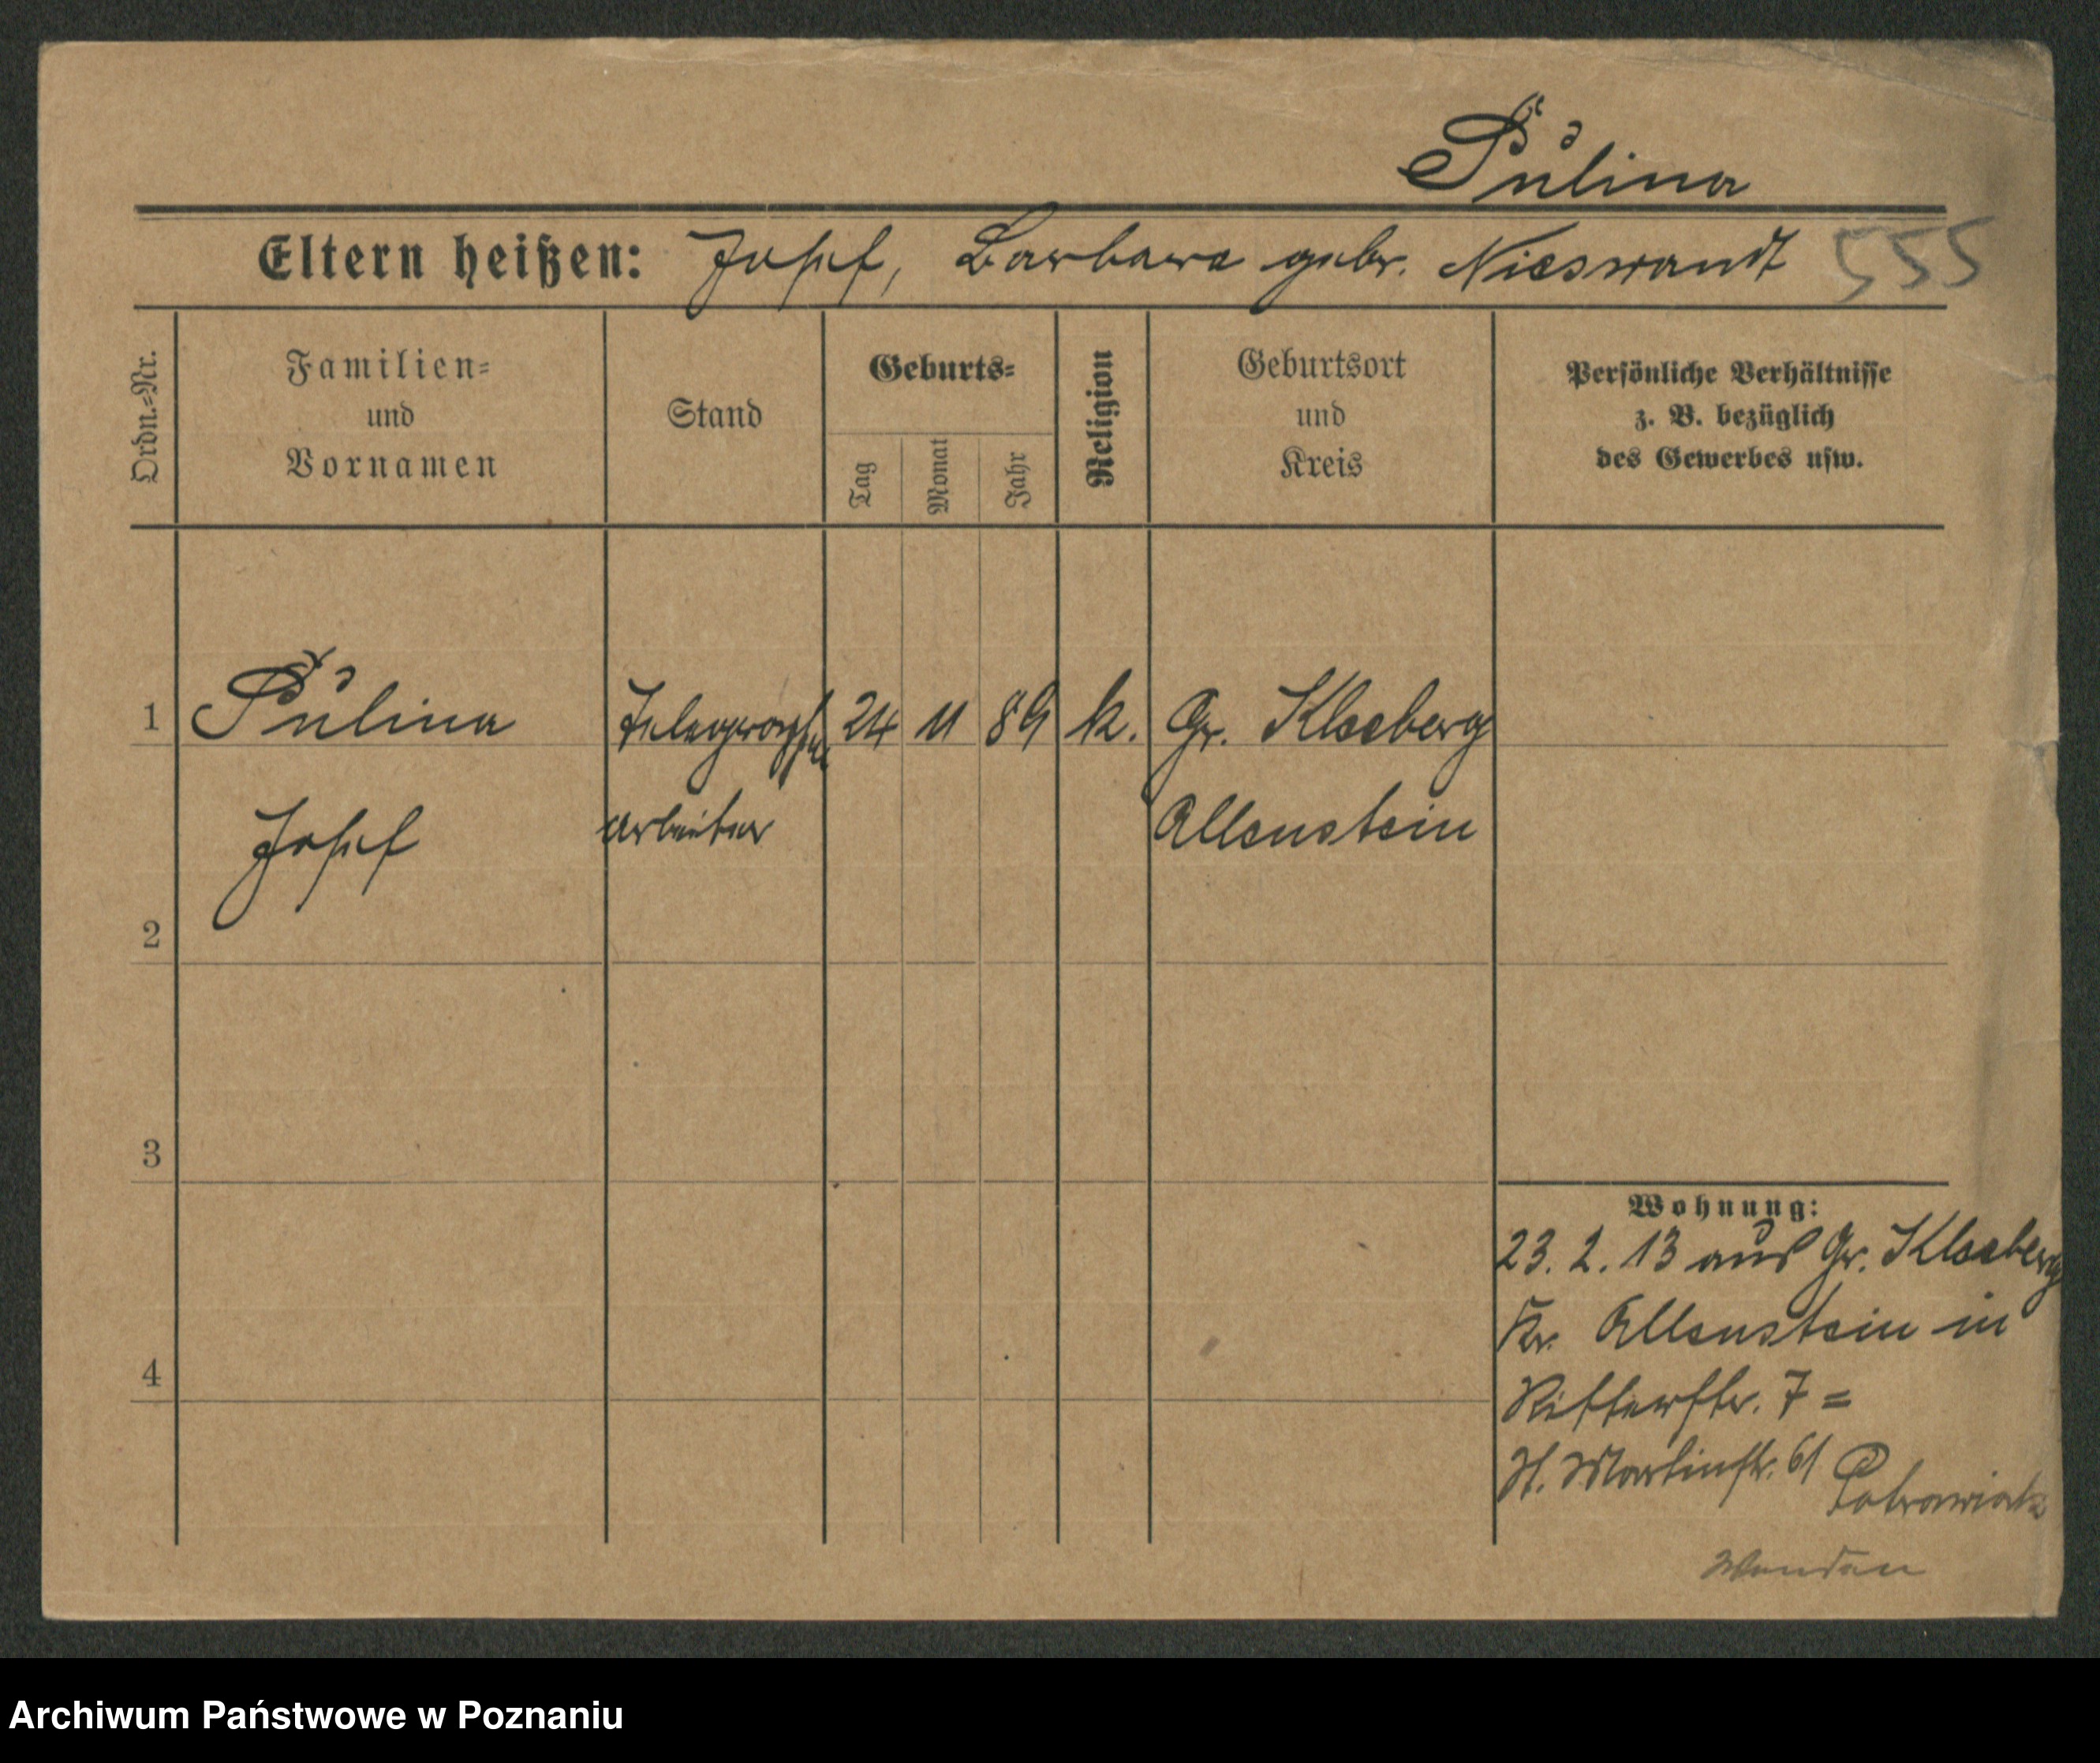 Pulina
Eltern heißen: Josef, Barbara gebr. Nieswandt 555
Ordn.=Nr.
Familien=
und
Vornamen
Stand
Geburts=
Tag
Monat
Jahr
Religion
Geburtsort
und
Kreis
Persönliche Verhältnisse
z. B. bezüglich
des Gewerbes usw.
1 Pulina Telegraphen 24 11 89 k. Gr. Kleeberg
Josef Arbeiter Allenstein
2
3
Wohnung:
23. 2. 13 aus Gr. Kleeberg
Kr. Allenstein in
4
Ritterstr. 7 =
St. Martinstr. 61
Archiwum Państwowe w Poznaniu